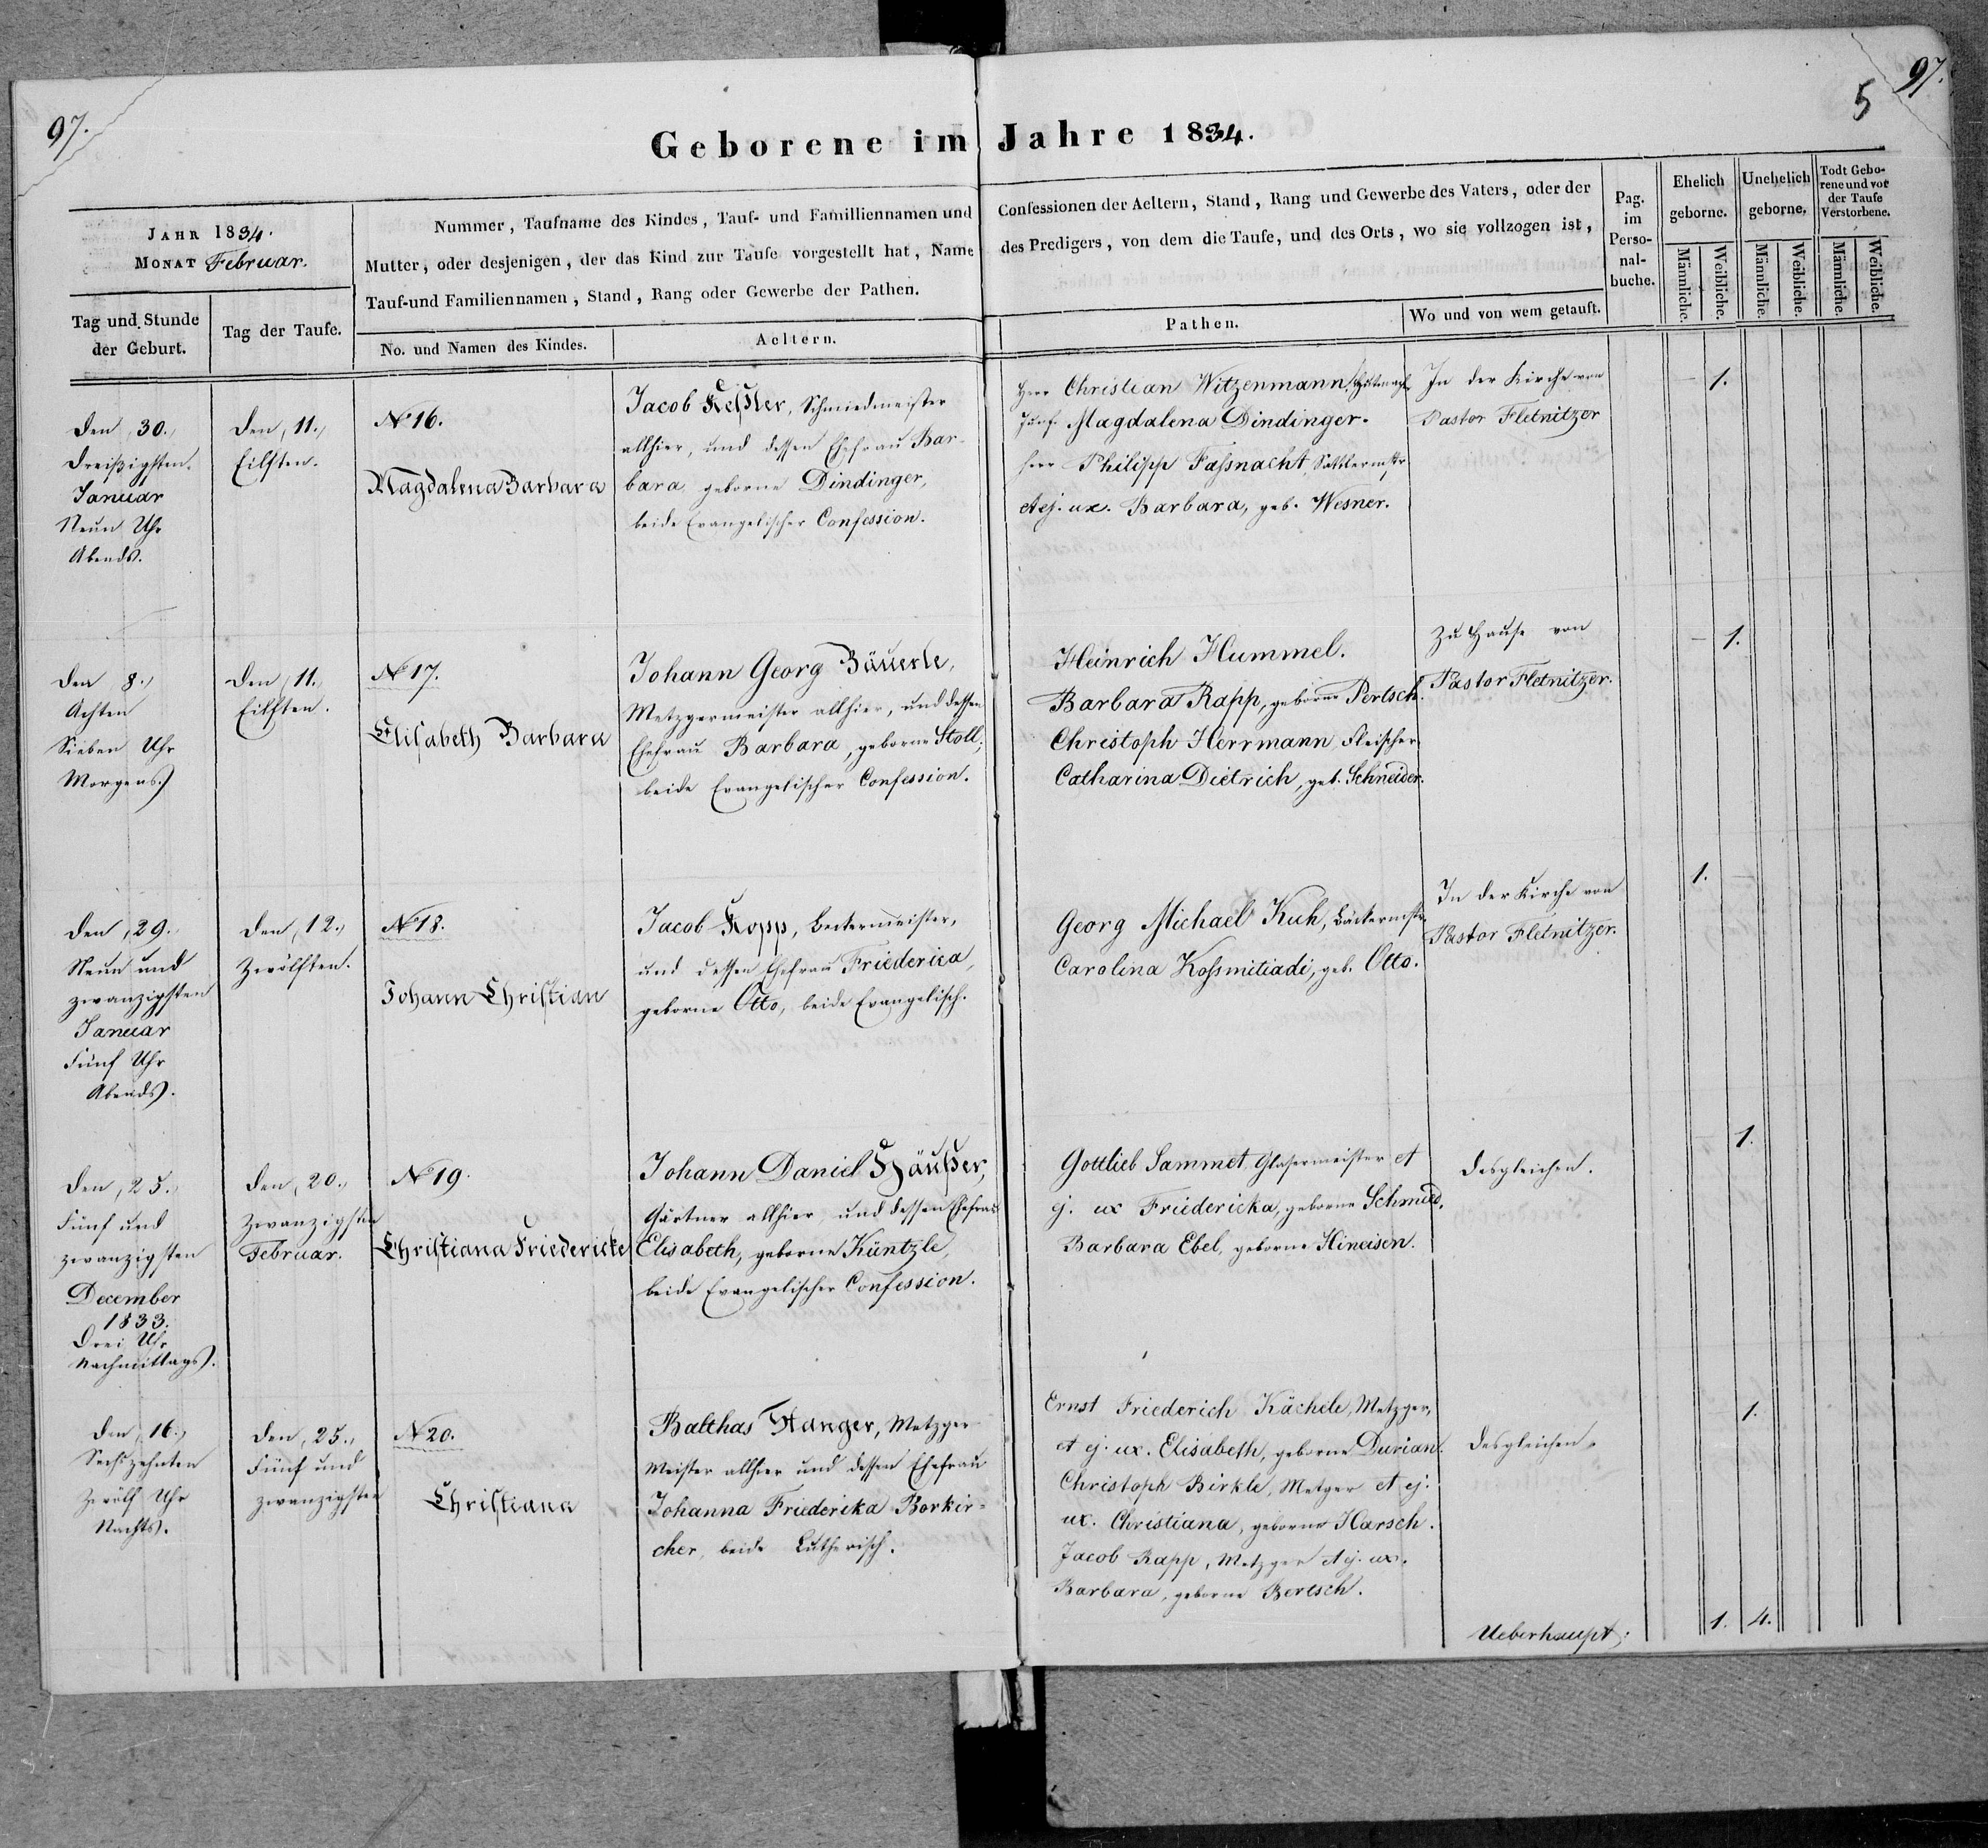 97.
97.
5
Geborene im Jahre 1834.
JAHR 1834.
MONAT Februar.
Tag und Stunde der Geburt.
Tag der Taufe.
Nummer, Taufname des Kindes, Tauf- und Familliennamen und
Mutter, oder desjenigen, der das Kind zur Taufe vorgestellt hat, Name
Tauf-und Familiennamen, Stand, Rang oder Gewerbe der Pathen.
No. und Namen des Kindes.
Aeltern.
Confessionen der Aeltern, Stand, Rang und Gewerbe des Vaters, oder der
des Predigers, von dem die Taufe, und des Orts, wo sie vollzogen ist,
Pathen.
Wo und von wem getauft.
Pag.
im
Perso-
nal-
buche.
Ehelich
geborne.
Unehelich
geborne.
Todt Gebo-
rene und vor
der Taufe
Verstorbene.
Männliche.
Weibliche.
Männliche.
Weibliche.
Männliche.
Weibliche.
Den 30.,
Dreißigsten
Januar
Neun Uhr
Abends.
Den 11.,
Eilften.
No 16.
Magdalena Barbara
Jacob Keßler, Schmiedmeister
allhier, und dessen Ehefrau Bar-
bara geborne Dindinger,
beide Evangelischer Confession.
Herr Christian Witzenmann
Jungf. Magdalena Dindinger.
Herr Philipp Faßnacht, Sattlermstr
et ej. ux. Barbara, geb. Wesner.
In der Kirche von
Pastor Fletnitzer
1.
Den 8.,
Achten
Sieben Uhr
Morgens.
Den 11.
Eilften.
No 17.
Elisabeth Barbara
Johann Georg Bäuerle,
Metzgermeister allhier, und dessen
Ehefrau Barbara, geborne Stoll;
beide Evangelischer Confession.
Heinrich Hummel.
Barbara Rapp, geborne Pertsch.
Christoph Herrmann Fleischer
Catharina Dietrich, geb. Schneider.
Zu Hause von
Pastor Fletnitzer.
1.
Den 29.
Neun und
zwanzigsten
Januar
Fünf Uhr
Abends.
Den 12.,
Zwölften.
No 18.
Johann Christian
Jacob Kopp, Beckermeister,
und dessen Ehefrau Friederica,
geborne Otto, beide Evangelisch.
Georg Michael Kuh, Bäckermstr.
Carolina Koßmitiadi, geb. Otto.
In der Kirche von
Pastor Fletnitzer.
1.
Den 25.
Fünf und
zwanzigsten
December
1833.
Drei Uhr
Nachmittags.
Den 20.,
Zwanzigsten
Februar.
No 19.
Christiana Friedericke
Johann Daniel Häußer,
Gärtner allhier, und dessen Ehefrau
Elisabeth, geborne Küntzle,
beide Evangelischer Confession.
Gottlieb Sammet, Glasermeister et
ej. ux Friedericka, geborne Schmid,
Barbara Ebel, geborne Hineisen.
desgleichen.
1.
Den 16.,
Sechszehnten
Zwölf Uhr
Nachts.
Den 25.,
Fünf und
zwanzigsten
No 20.
Christiana
Balthas Stanger, Metzger
Meister allhier und dessen Ehefrau
Johanna Friederika Borkir-
cher, beide Lutherisch.
Ernst Friederich Kächele, Metzger,
et ej. ux. Elisabeth, geborne Durian.
Christoph Birkle, Metzger et ej:
ux. Christiana, geborne Harsch.
Jacob Rapp, Metzger et ej. ux.
Barbara, geborne Bertsch.
desgleichen.
1.
Ueberhaupt:
1. 4.